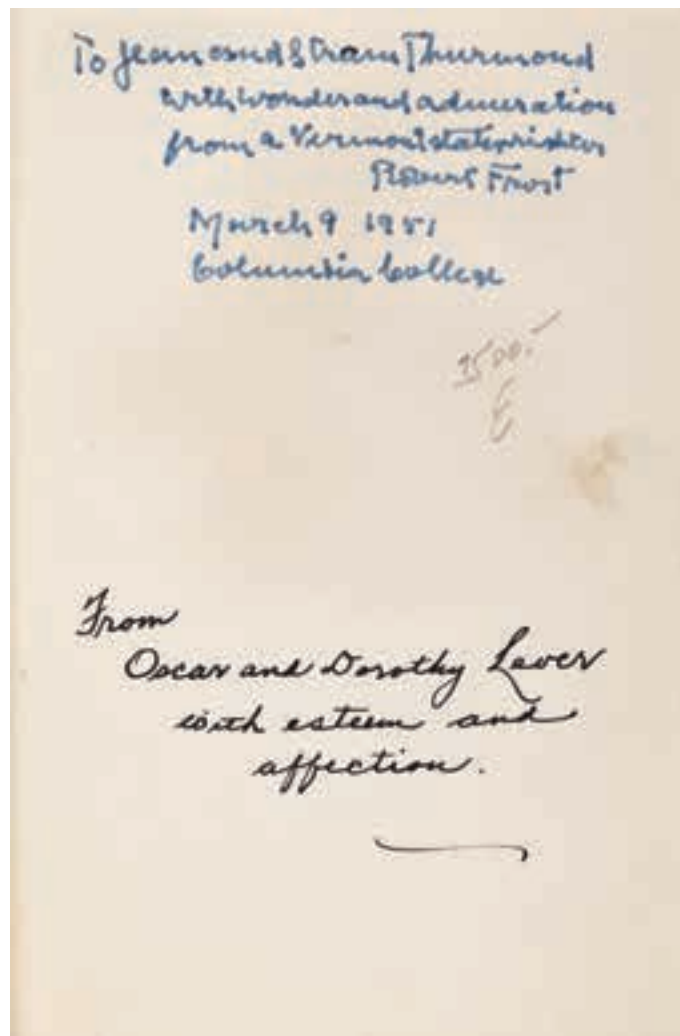 To Jean and Strom Thurmond
with wonder and admiration
from a Vermont
Robert Frost
March 9 1951
Columbia College
From
Oscar and Dorothy Lever
with esteem and
affection.